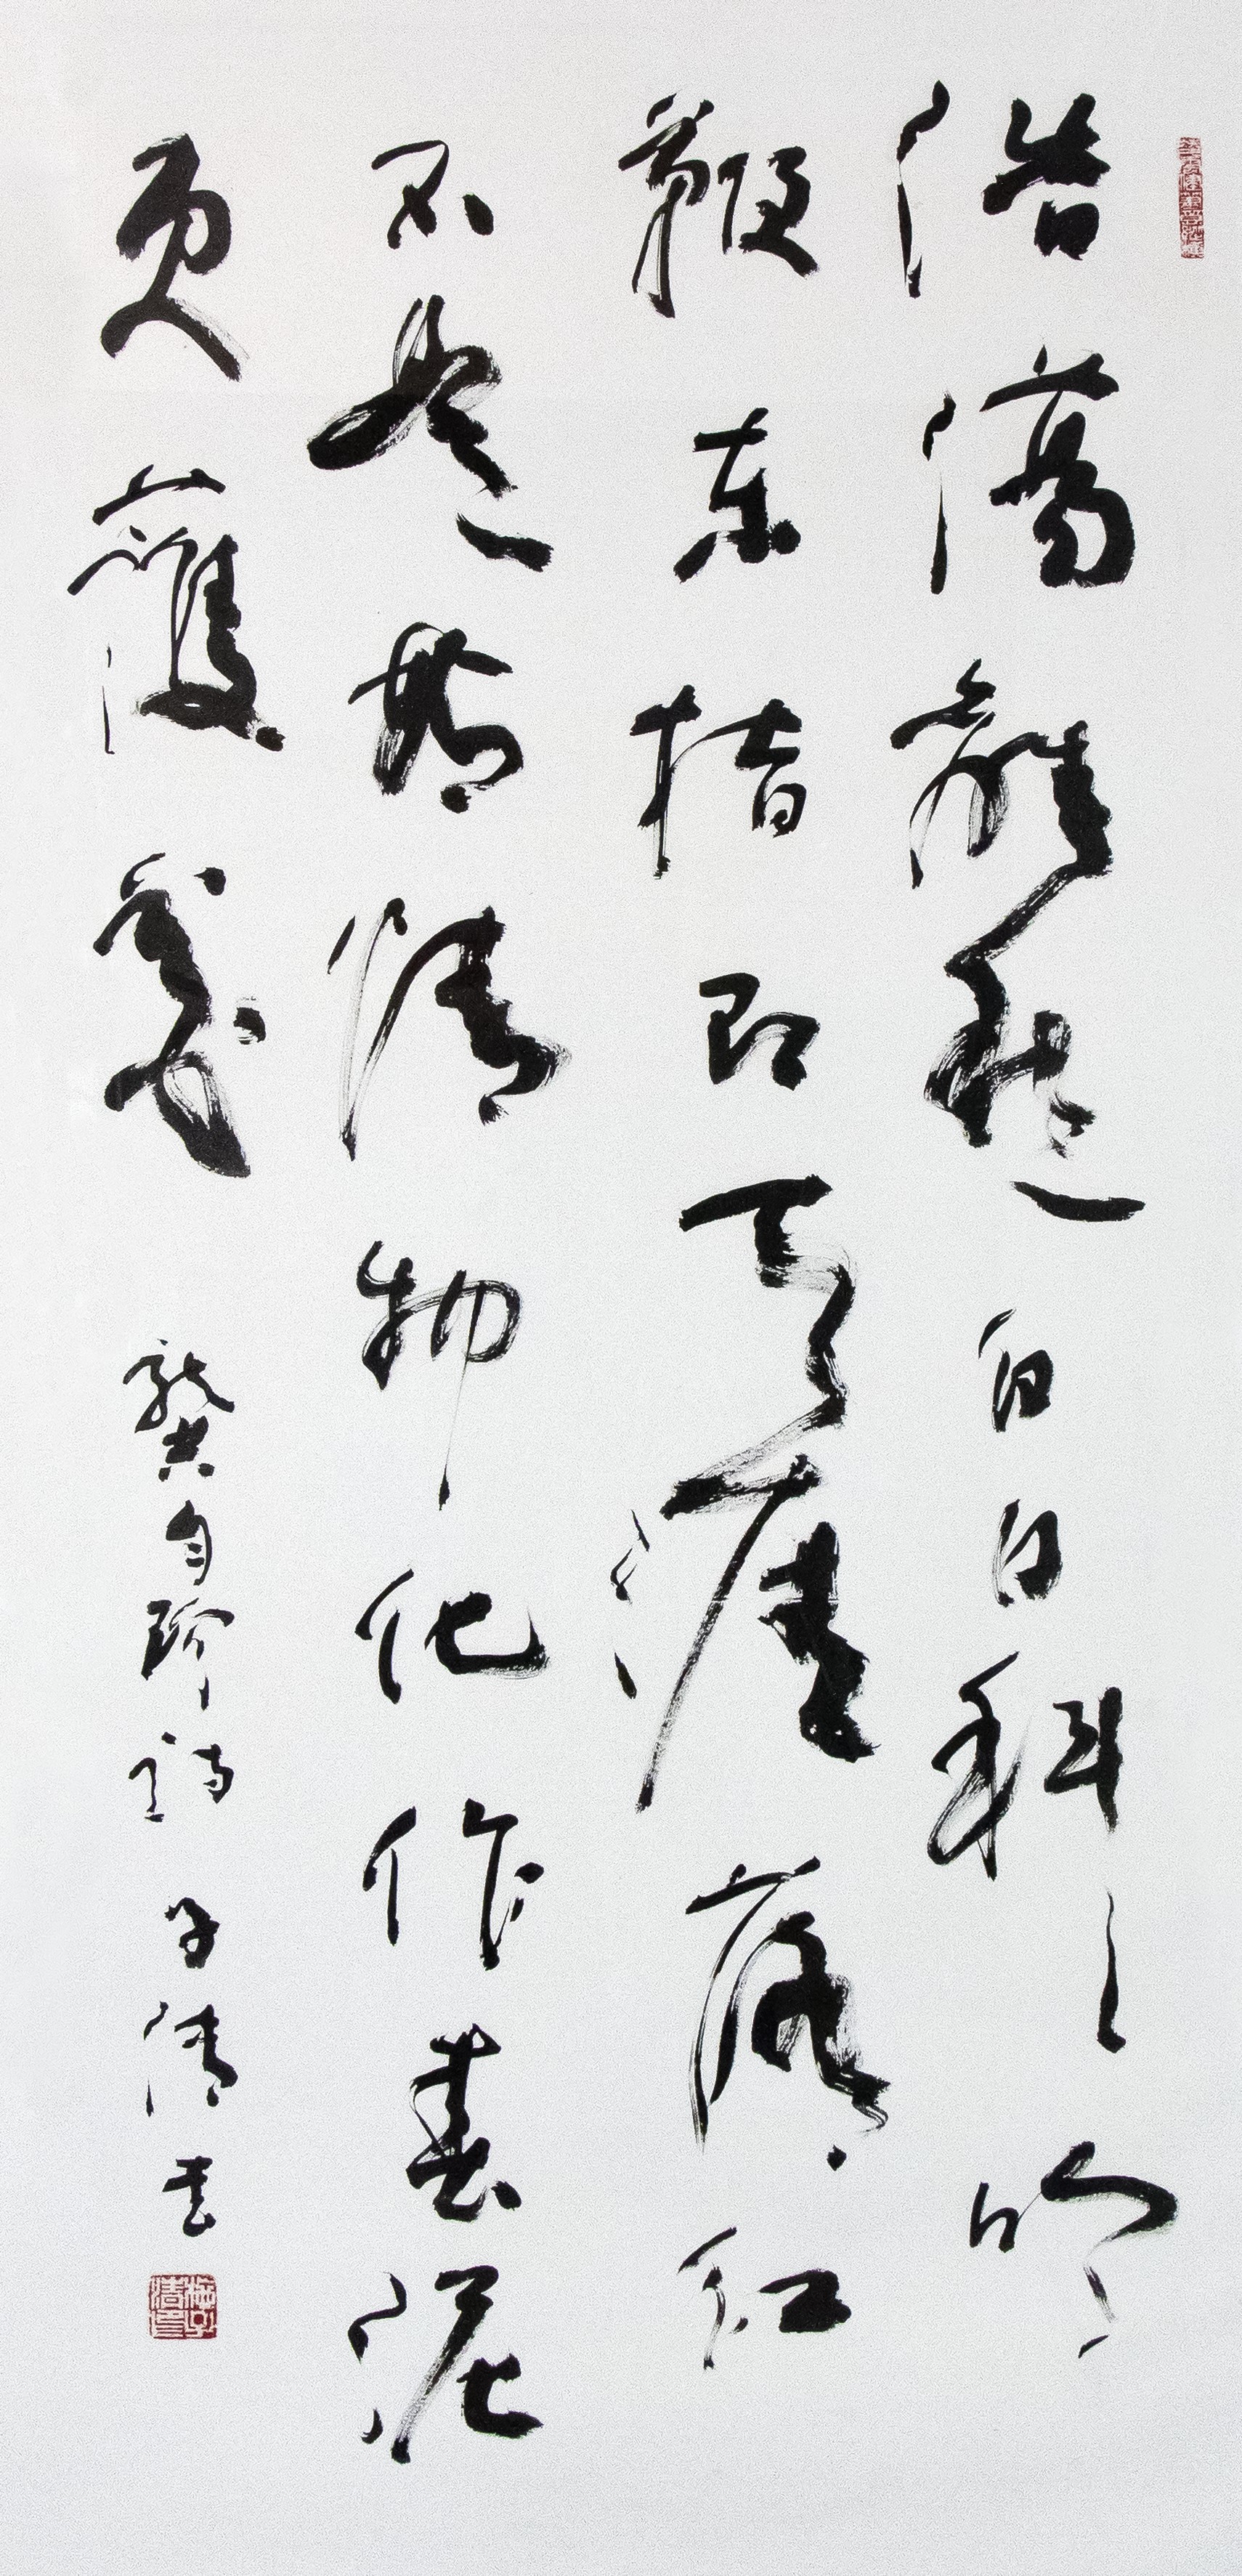 浩蕩離愁白日斜吟
鞭東指即天涯落紅
不是無情物化作春泥
更護花 龔自珍詩 子清書
梅子清印